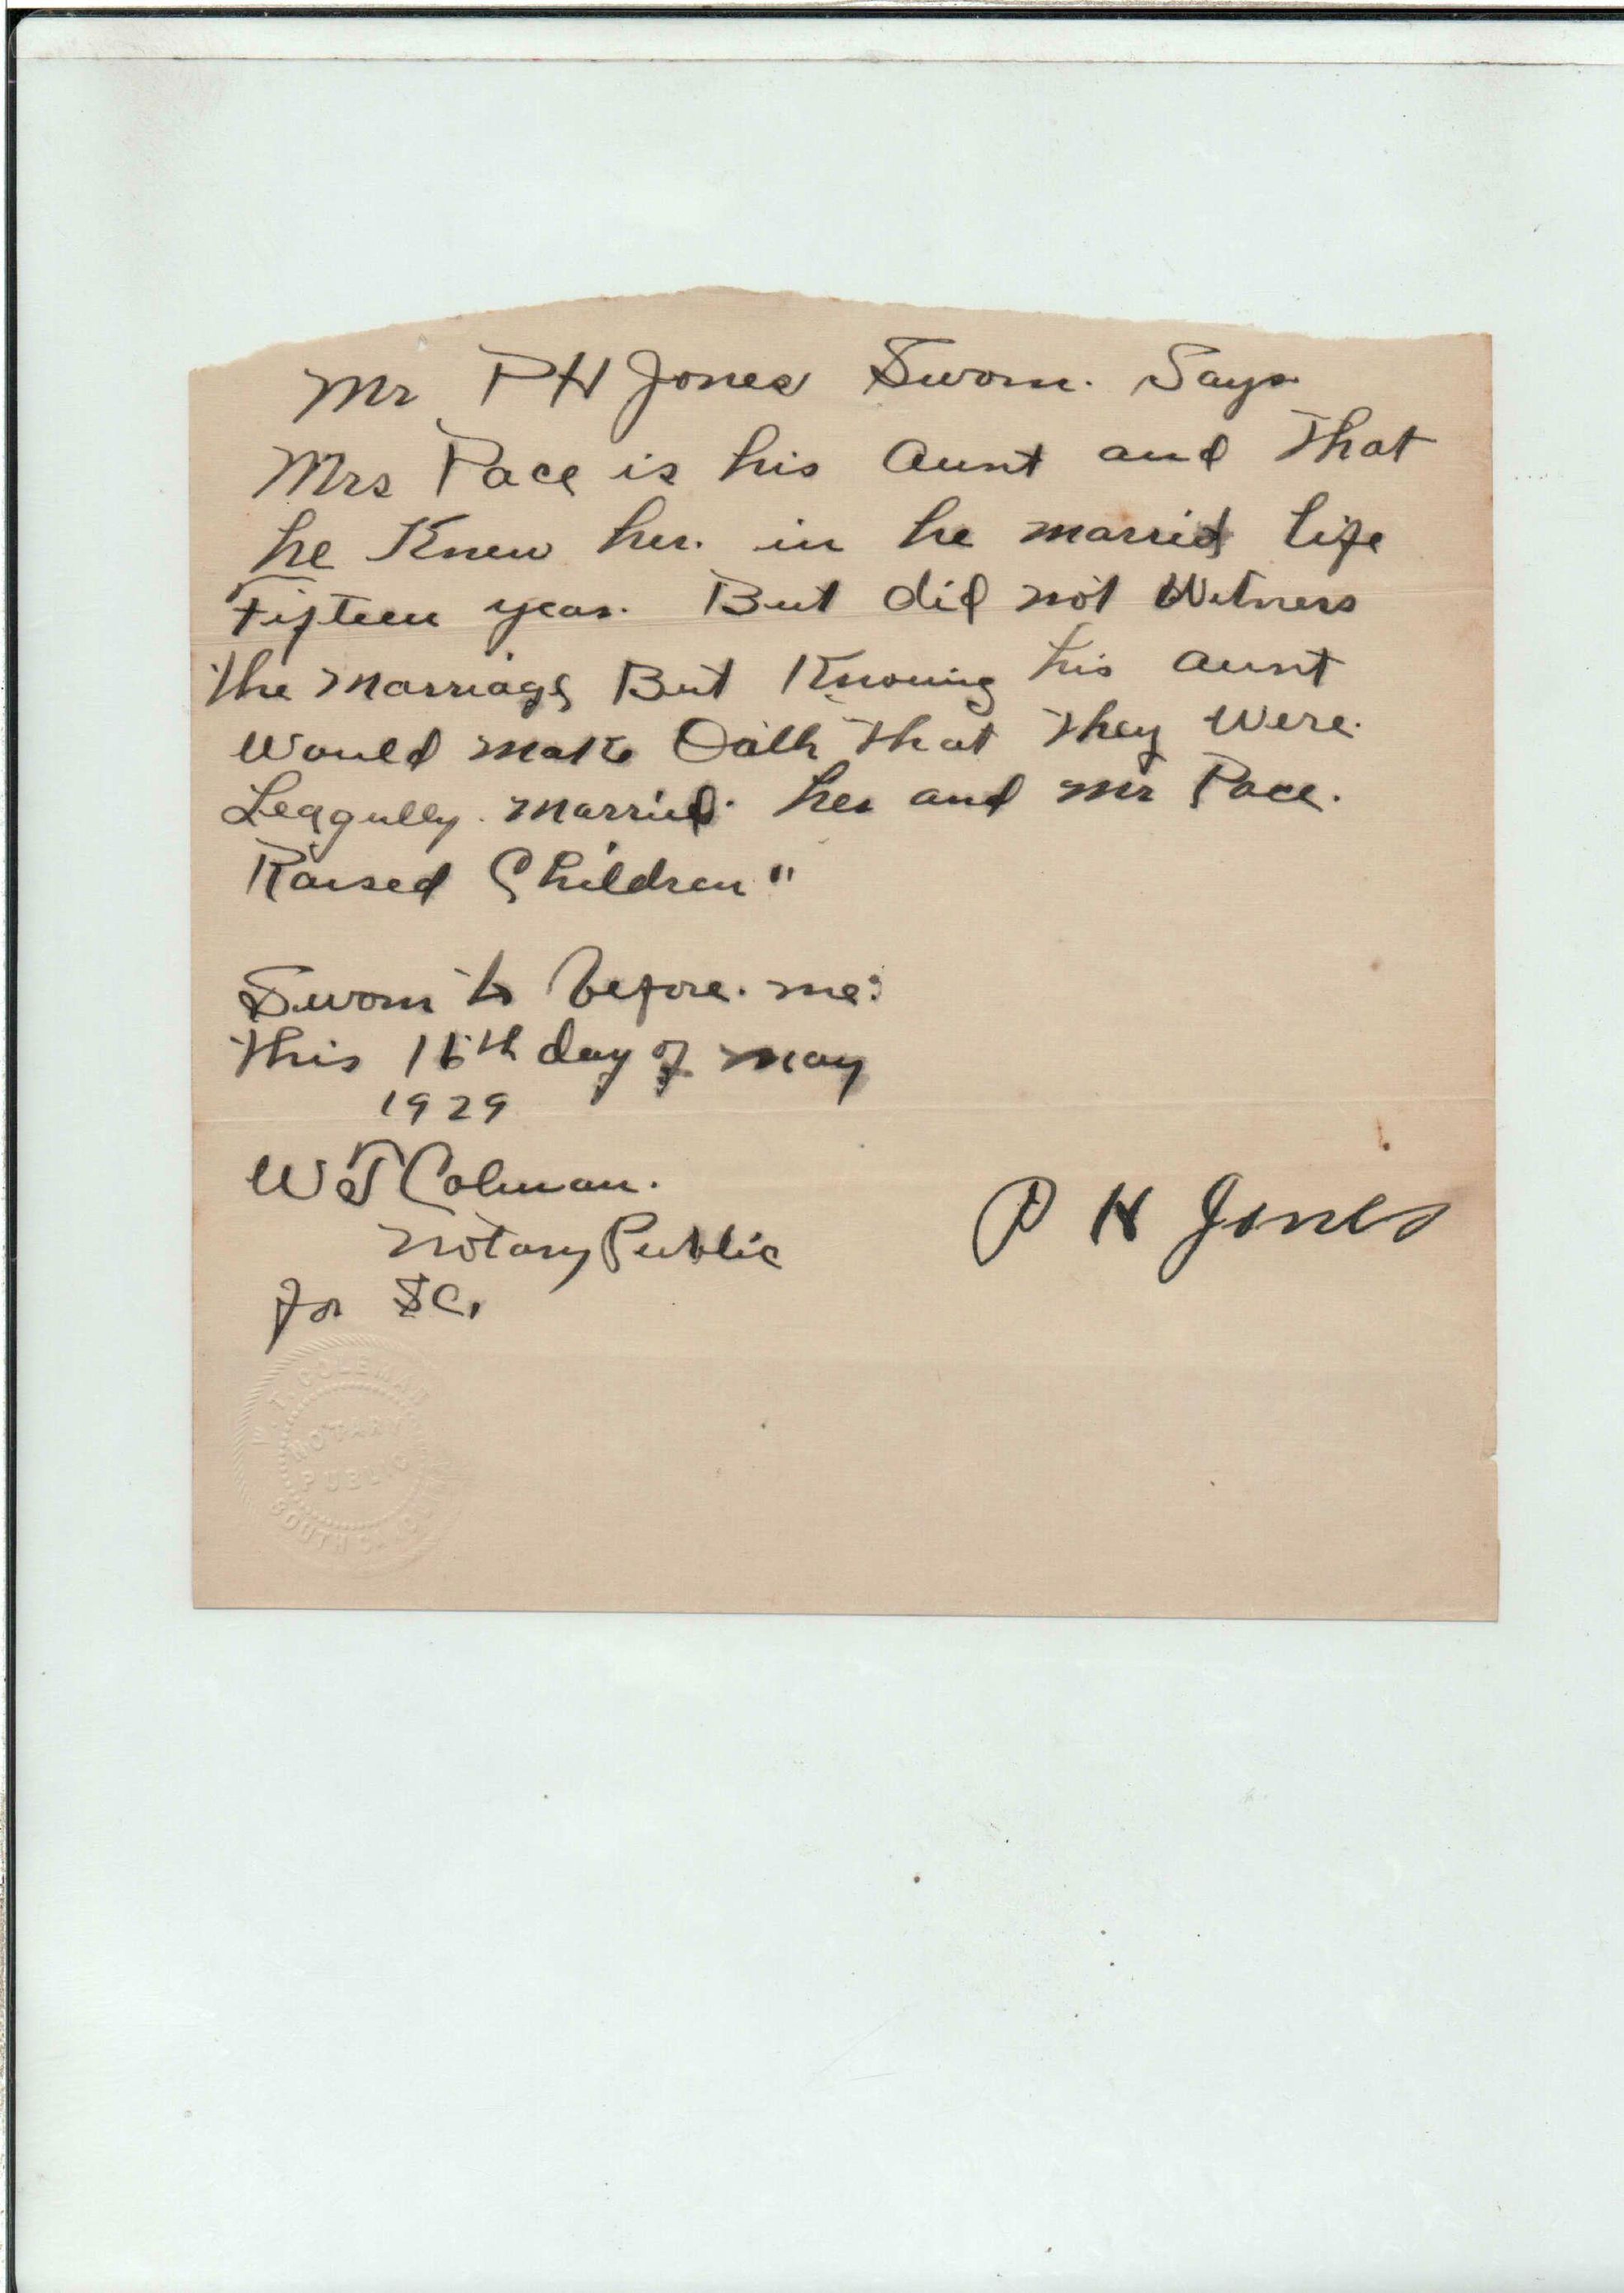 Mr PH Jones Sworn. Says
Mrs Pace is his Aunt and That
he Knew her. in he married life
Fifteen year. But did not Witness
the Marriage But Knowing his Aunt
Would make Oath That They Were.
Leagully. Married. her and Mr Pace.
Raised Children"
Sworn to before. me:
This 16th day of May
1929
W T Coleman.
Notary Public
for SC.
P H Jones
W. T. COLEMAN
NOTARY
PUBLIC
SOUTH CAROLINA